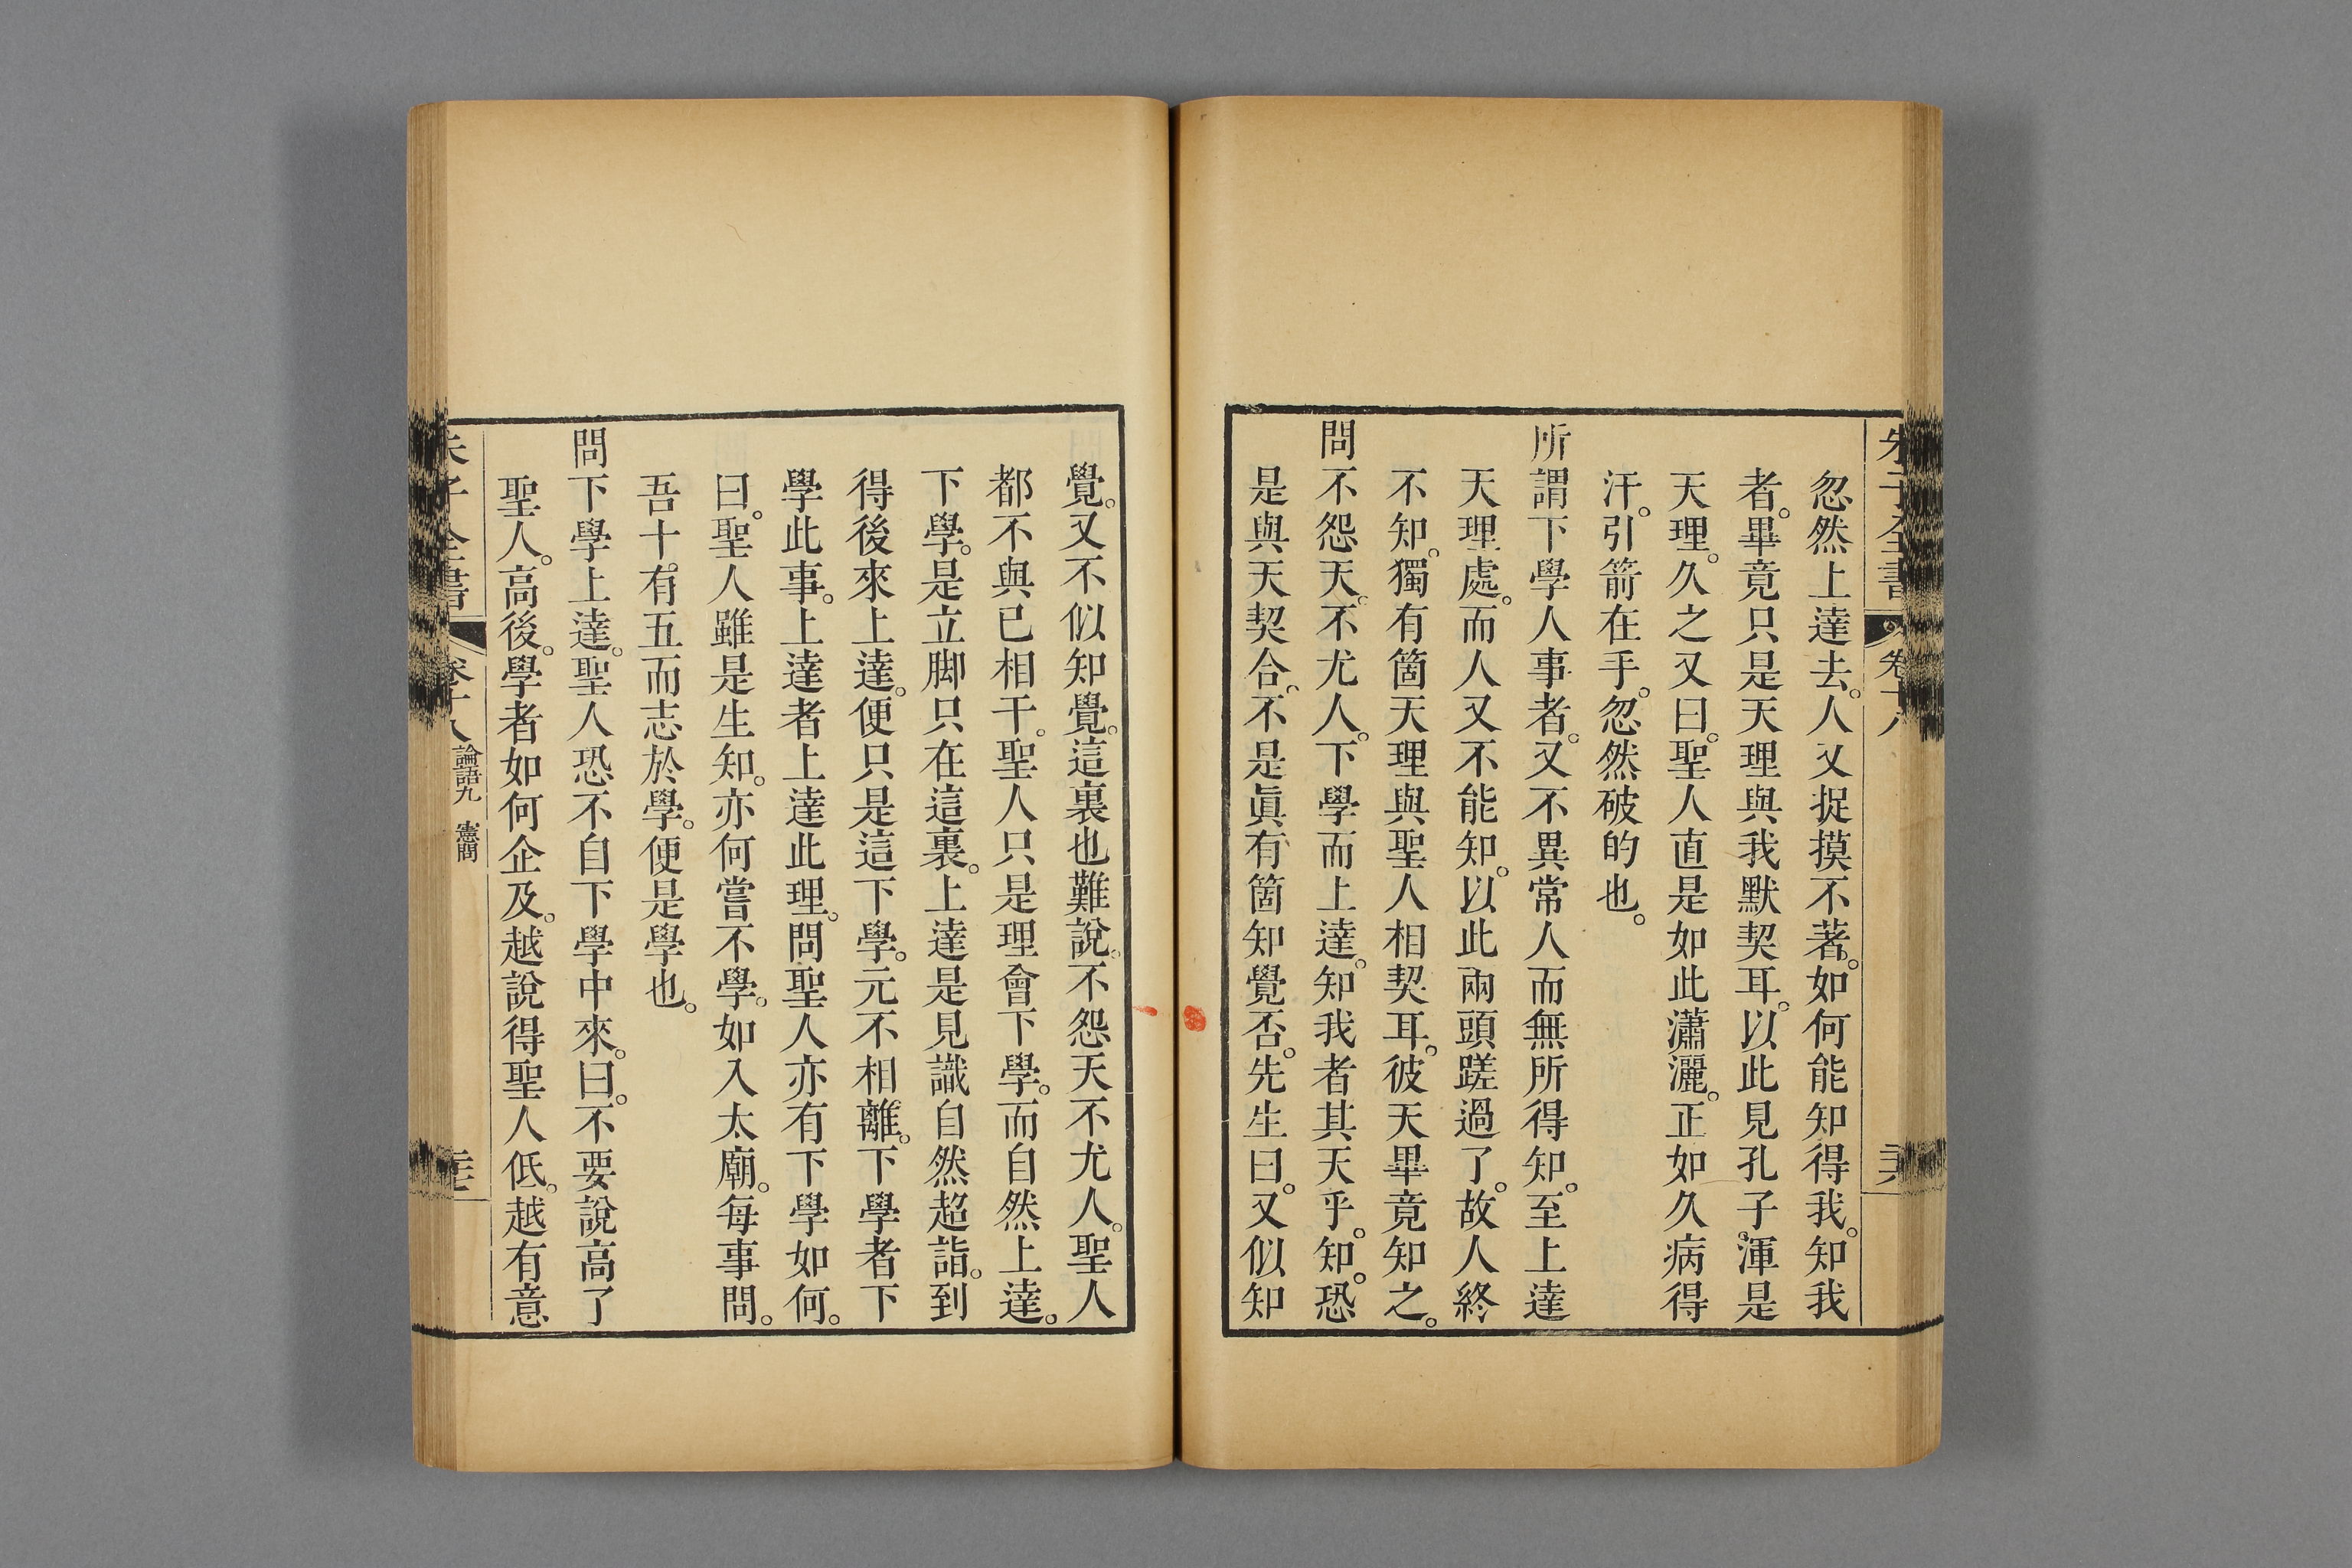 朱子全書 卷十八
忽然上達去。人又捉摸不著。如何能知得我。知我
者。畢竟只是天理與我默契耳。以此見孔子。渾是
天理。久之又曰。聖人直是如此瀟灑。正如久病得
汗。引箭在手。忽然破的也。
所謂下學人事者。又不異常人而無所得知。至上達
天理處。而人又不能知。以此兩頭蹉過了。故人終
不知。獨有箇天理與聖人相契耳。彼天畢竟知之。
問不怨天。不尤人。下學而上達。知我者其天乎。知。恐
是與天契合。不是眞有箇知覺否。先生曰。又似知
覺。又不似知覺。這裏也難說。不怨天不尤人。聖人
都不與已相干。聖人只是理會下學。而自然上達。
下學。是立脚只在這裏。上達是見識自然超詣。到
得後來上達。便只是這下學。元不相離。下學者下
學此事。上達者上達此理。問聖人亦有下學如何。
曰。聖人雖是生知。亦何嘗不學。如入太廟。每事問。
吾十。有五而志於學。便是學也。
問下學上達。聖人恐不自下學中來。曰。不要說高了
聖人。高後。學者如何企及。越說得聖人低。越有意
朱子全書 卷十八 論語九 憲問